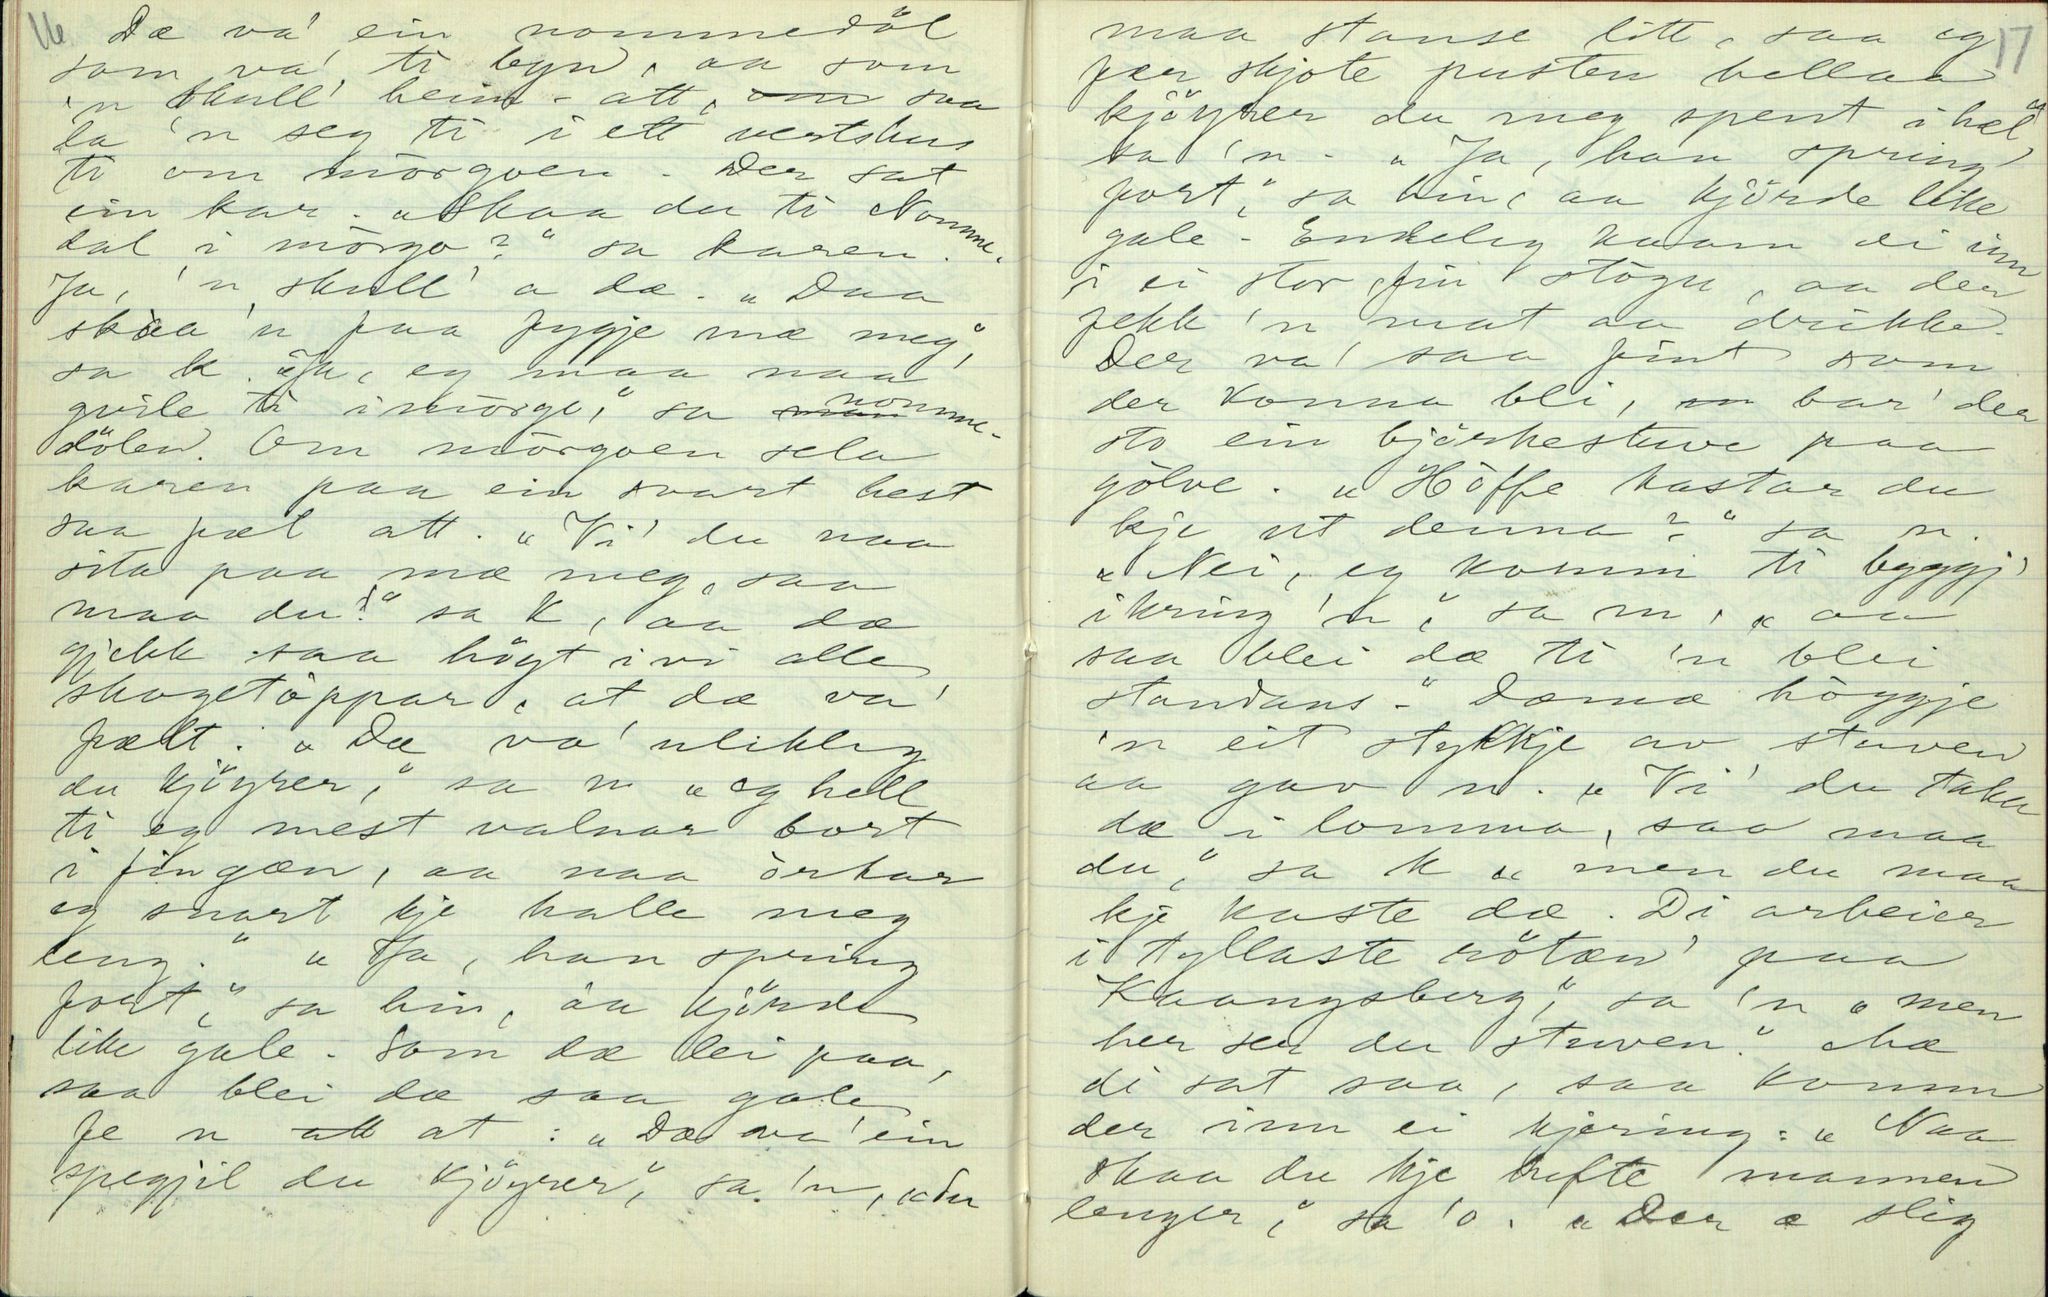 16
Dæ va' ein nommedöl
som va' ti byn, aa som
'n skull' heim-att, om saa
la 'n seg ti i ett vertshus
ti om mörgoen. Der sat
ein kar. „Skaa du ti Nomme-
dal i mörgo?" sa karen.
Ja, 'n skull' a dæ. „Daa
skaa 'n faa fygje mæ meg",
sa k. „Ja, eg maa naa
qvile ti imörgo," sa man nomme-
dölen. Om mörgoen sela
karen paa ein svart hest
saa fæl att. „Vi' du naa
sita paa mæ meg, saa
maa du!" sa k, aa dæ
gjekk saa högt ivi alle
skogetöppar, at dæ va'
fælt. „Dæ va' ulikleg
du kjöyrer," sa n. „eg hell
ti eg mest valnar bort
i fingæn, aa naa örkar
eg snart kje halle meg
leng." „Ja, han spring
fort," sa hin, aa kjörde
like gale. Som dæ lei paa,
saa blei dæ saa gale
fe n att at: „Dæ va' ein
spegjil du kjöyrer," sa 'n, „du
17
maa stanse litt, saa eg
fær skjote pusten hellaa
kjöyrer du meg spent ihæl"
sa 'n. „Ja, han spring
fort," sa hin, aa kjörde like
gale. Endeleg kaam di inn
i ei stor, fin stögu, aa der
fekk 'n mat aa drikke.
Der va' saa fint som
der konna bli, m bar' der
sto ein björkestuve paa
gölve. „Höffe kastar du
kje ut denna?" sa n.
„Nei, eg komm ti byggj'
ikring 'n," sa m. „aa
saa blei dæ ti 'n blei
standans." Dæmæ höggje
'n eit stykkje av stuven
aa gav n. „Vi' du taka
dæ i lomma, saa maa
du," sa k „men du maa
kje kaste dæ. Di arbeier
i tyllaste rötæn' paa
Kaangsberg," sa 'n „men
her ser du stuven." Mæ
di sat saa, saa komm
der inn ei kjering: „Naa
skaa du kje hefte mannen
lenger," sa 'o. „Der æ slig